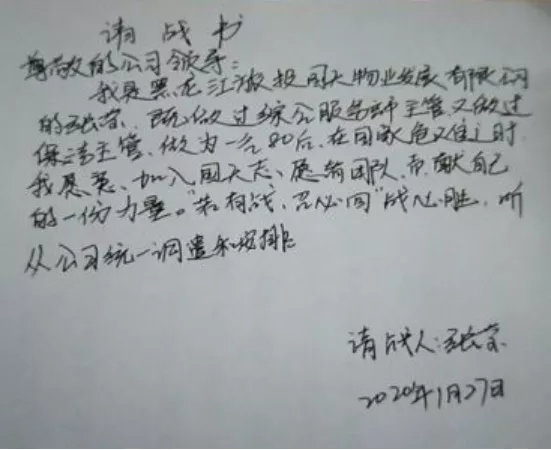 请战书
尊敬的公司领导：
我是黑龙江农投国天物业发展有限公司
的张荣、既做过综合服务部主管、又做过
保洁主管、做为一名80后、在国家危难之时
我愿意、加入国天志愿者团队、贡献自己
的一份力量。“若有战、召必回”战必胜、听
从公司统一调遣和安排
请战人：张荣
2020年1月27日